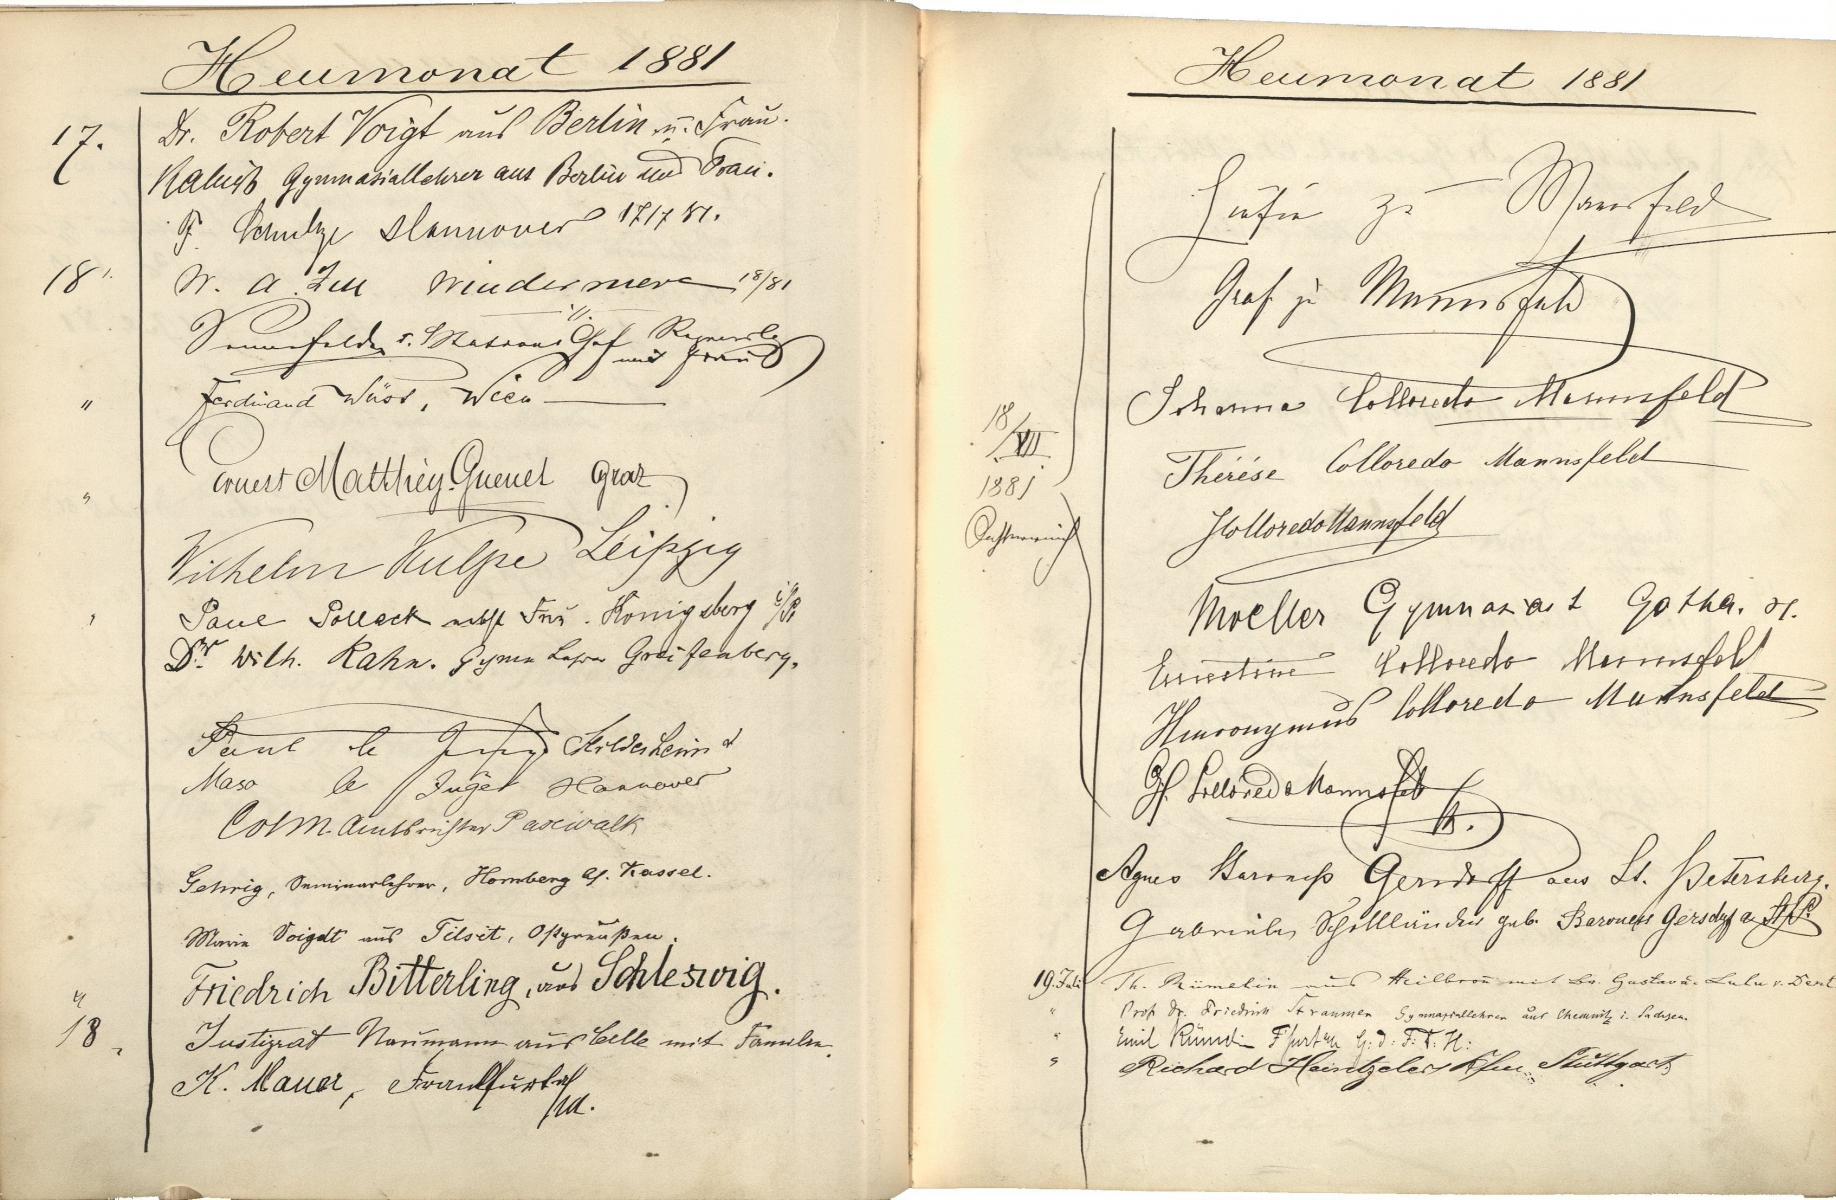 Heumonat 1881
17. Dr. Robert Voigt aus Berlin u. Frau.
Gymnasiallehrer aus Berlin und Frau.
F. Schultze Hannover 17/7 81.
18. W. A. Zell Windermere 18/81
und Frau
" Ferdinand Wüst, Wien
" Ernest Matthey-Guenet Graz
Wilhelm Kulpe Leipzig
" Paul Pollack nebst Frau. Königsberg i/Pr
Dr. Wilh. Kahn. Gymn Lehrer Greifenberg.
Paul le Hildesheim
le Jüget Hannover
Amtsrichter Pasewalk
Gehrig, Seminarlehrer, Homberg Cf. Kassel.
Marie Voigdt aus Tilsit, Ostpreußen.
" Friedrich Bitterling, aus Schleswig.
18. Justizrat Naumann aus Celle mit Familie.
K. Mauer, Frankfurt a/M.
Heumonat 1881
zu Mansfeld
Graf zu Mannsfeld
18/VII 1881 Oesterreich
Johanna Colloredo Mannsfeld
Thérése Colloredo Mannsfeld
JColloredoMannsfeld
Moeller Gymnasiast Gotha.
Ernestine Colloredo Mannsfeld
Hieronymus Colloredo Mannsfeld
Gf. Colloredo Mannsfeld
Agnes Baroness Gersdorff aus St. Petersburg.
Gabriele geb. Baroness Gersdorff a. St. P.
19. Juli Th. Rümelin aus Heilbronn mit Gustav u. Lulu v.
" Prof. Dr. Friedrich Straumer Gymnasiallehrer aus Chemnitz i. Sachsen.
" Emil
" Richard Heintzeler Kfm. Stuttgart